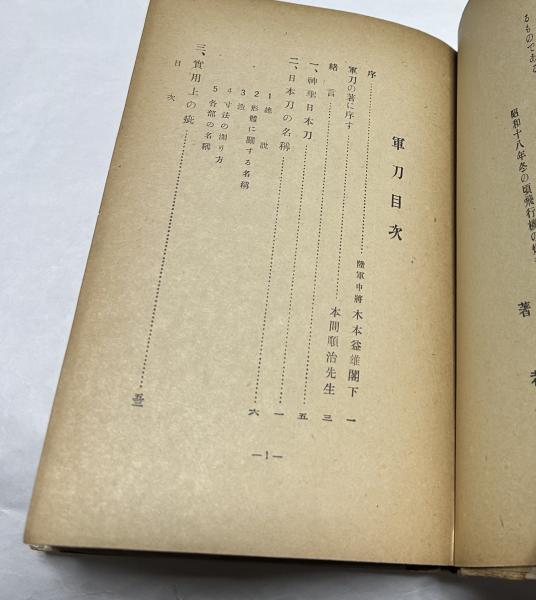 るものである
昭和十八年冬の頃飛行機の
著者
軍刀目次
序……陸軍中將 木本益雄閣下 一
軍刀の著に序す……本間順治先生 三
緒言……五
一、神聖日本刀……一
二、日本刀の名稱……六
1 總說
2 形態に關する名稱
3 造
4 寸法の測り方
5 各部の名稱
三、實用上の疵……
目次
—1—